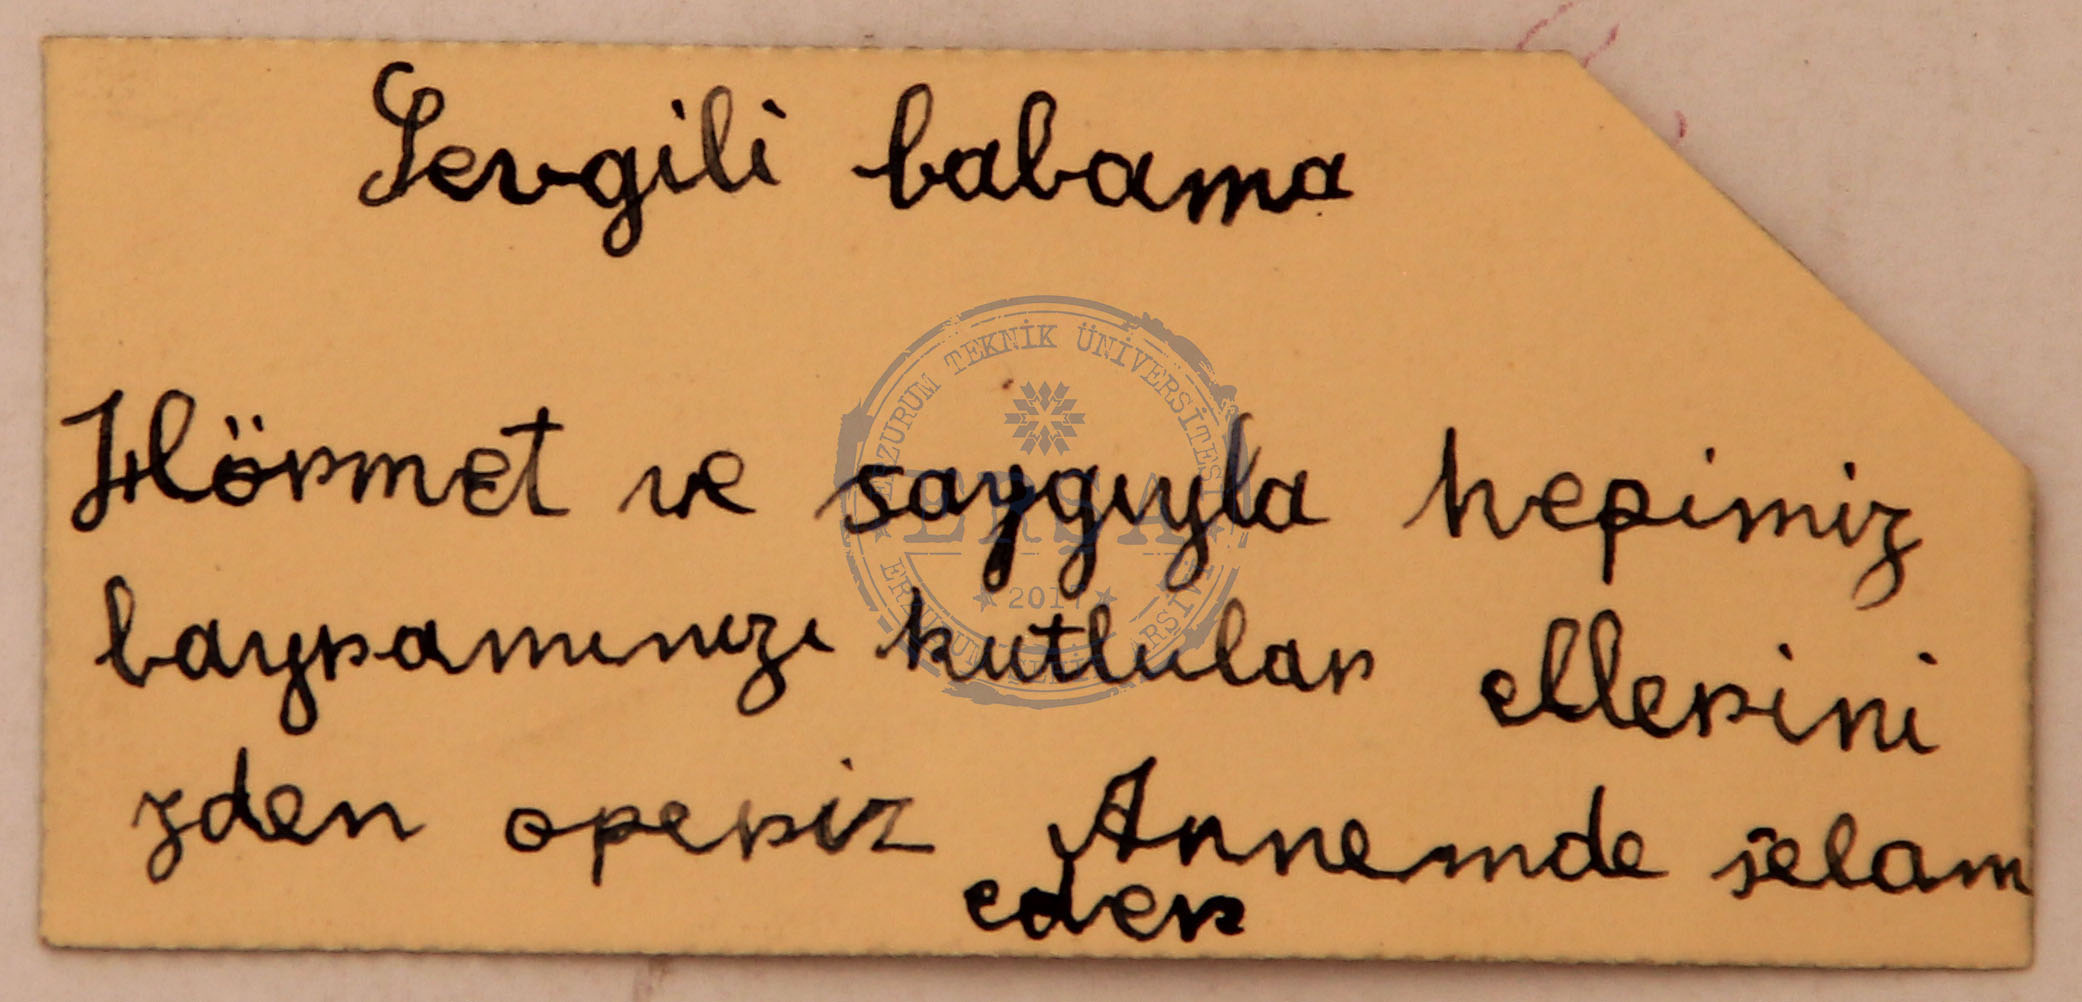 Sevgili babama
Hörmet ve saygıyla hepimiz
bayramınızı kutlular ellerini
zden operiz Annemde selam
eder
ERZURUM TEKNİK ÜNİVERSİTESİ
ERŞA
2017
ERZURUM ŞEHİR ARŞİVİ